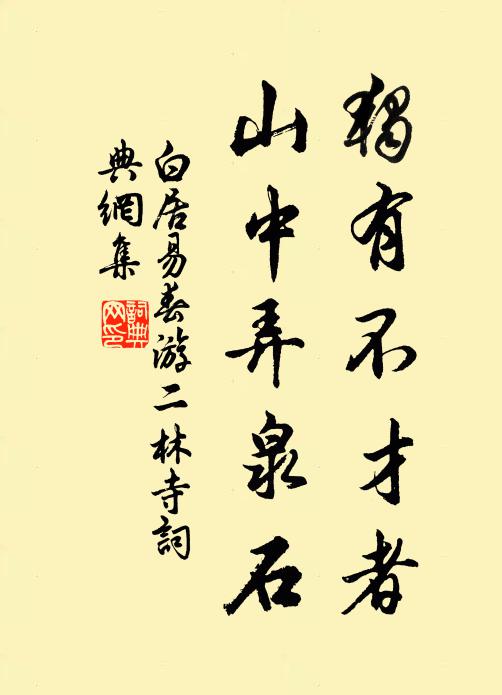 獨有不才者
山中弄泉石
白居易春游二林寺詞
典網集
詞典
网印